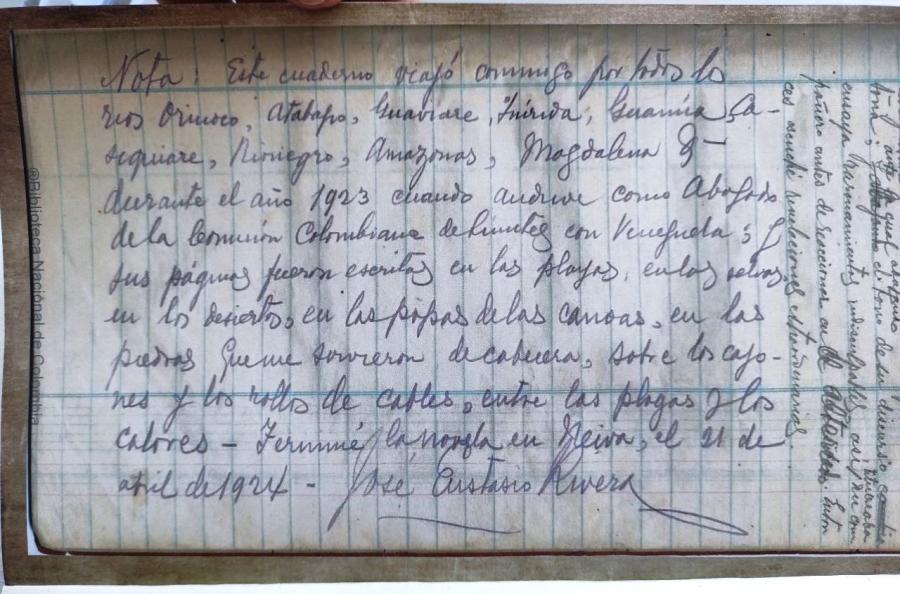 Nota: Este cuaderno viajó conmigo por todos los
ríos Orinoco, Atabapo, Guaviare, Inírida, Guainía, Ca-
siquiare, Rionegro, Amazonas, Magdalena
durante el año 1923 cuando anduve como Abogado
de la Comisión Colombiana de Límites con Venezuela; y
sus páginas fueron escritas en las playas, en las selvas,
en los desiertos, en las popas de las canoas, en las
piedras que me sirvieron de cabecera, sobre los cajo-
nes y los rollos de cables, entre las plagas y los
calores – Terminé la novela en Neiva, el 21 de
abril de 1924 –
José Eustasio Rivera
ces escuché revelaciones extraordinarias.
pañero antes de reaccionar en
@Biblioteca Nacional de Colombia